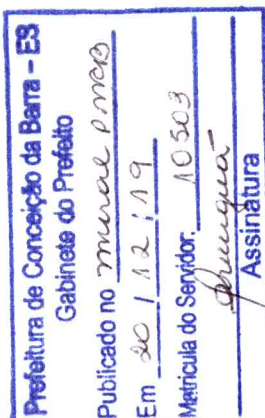 Prefeitura de Conceição da Barra - ES
Gabinete do Prefeito
Publicado no mural PMCB
Em 20 / 12 / 19
Matrícula do Servidor: 10503
Assinatura